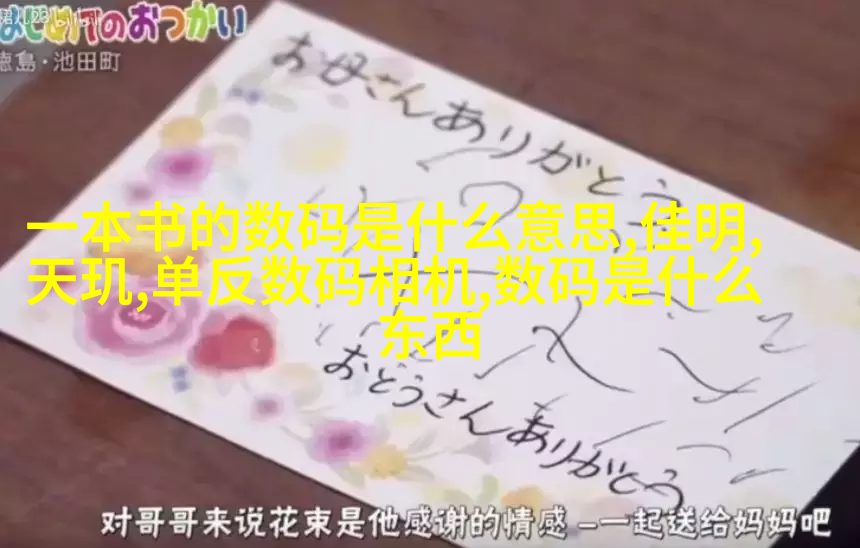 はじめてのおつかい
徳島・池田町
お母さんありがとう
一本书的数码是什么意思,佳明,
天玑,单反数码相机,数码是什么
东西
おとうさんありがとう
对哥哥来说花束是他感谢的情感 –一起送给妈妈吧